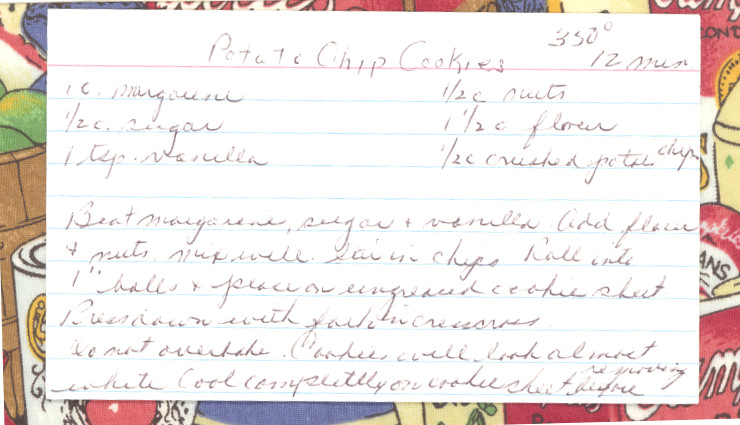 350°
Potato Chip Cookies 12 min
1 c. margarine 1/2 c nuts
1/2 c. sugar 1 1/2 c flour
1 tsp. vanilla 1/2 c crushed potato chips
Beat margarine, sugar + vanilla. Add flour
+ nuts. Mix well. Stir in chips Roll into
1" balls + place on ungreased cookie sheet
Press down with fork in crisscross.
Do not overbake. Cookies will look almost
white Cool completely on cookie sheet before removing
ANS